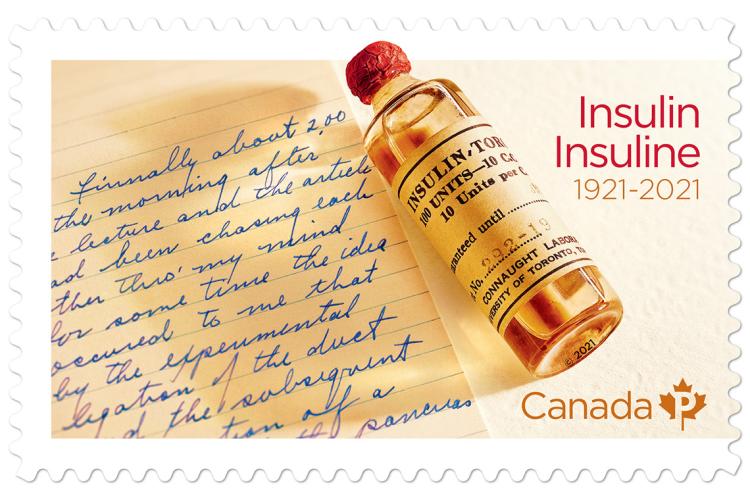 Finnally about 2.00
the morning after
lecture and the article
had been chasing each
ther thro' my mind
for some time the idea
occured to me that
by the experimental
ligation of the duct
and the subsequent
tion of a
the pancreas
INSULIN-TOR
100 UNITS—10 C.C.
10 Units per C
aranteed until
No. 292-19
CONNAUGHT LABORA
VERSITY OF TORONTO, TO
© 2021
Insulin
Insuline
1921-2021
Canada P